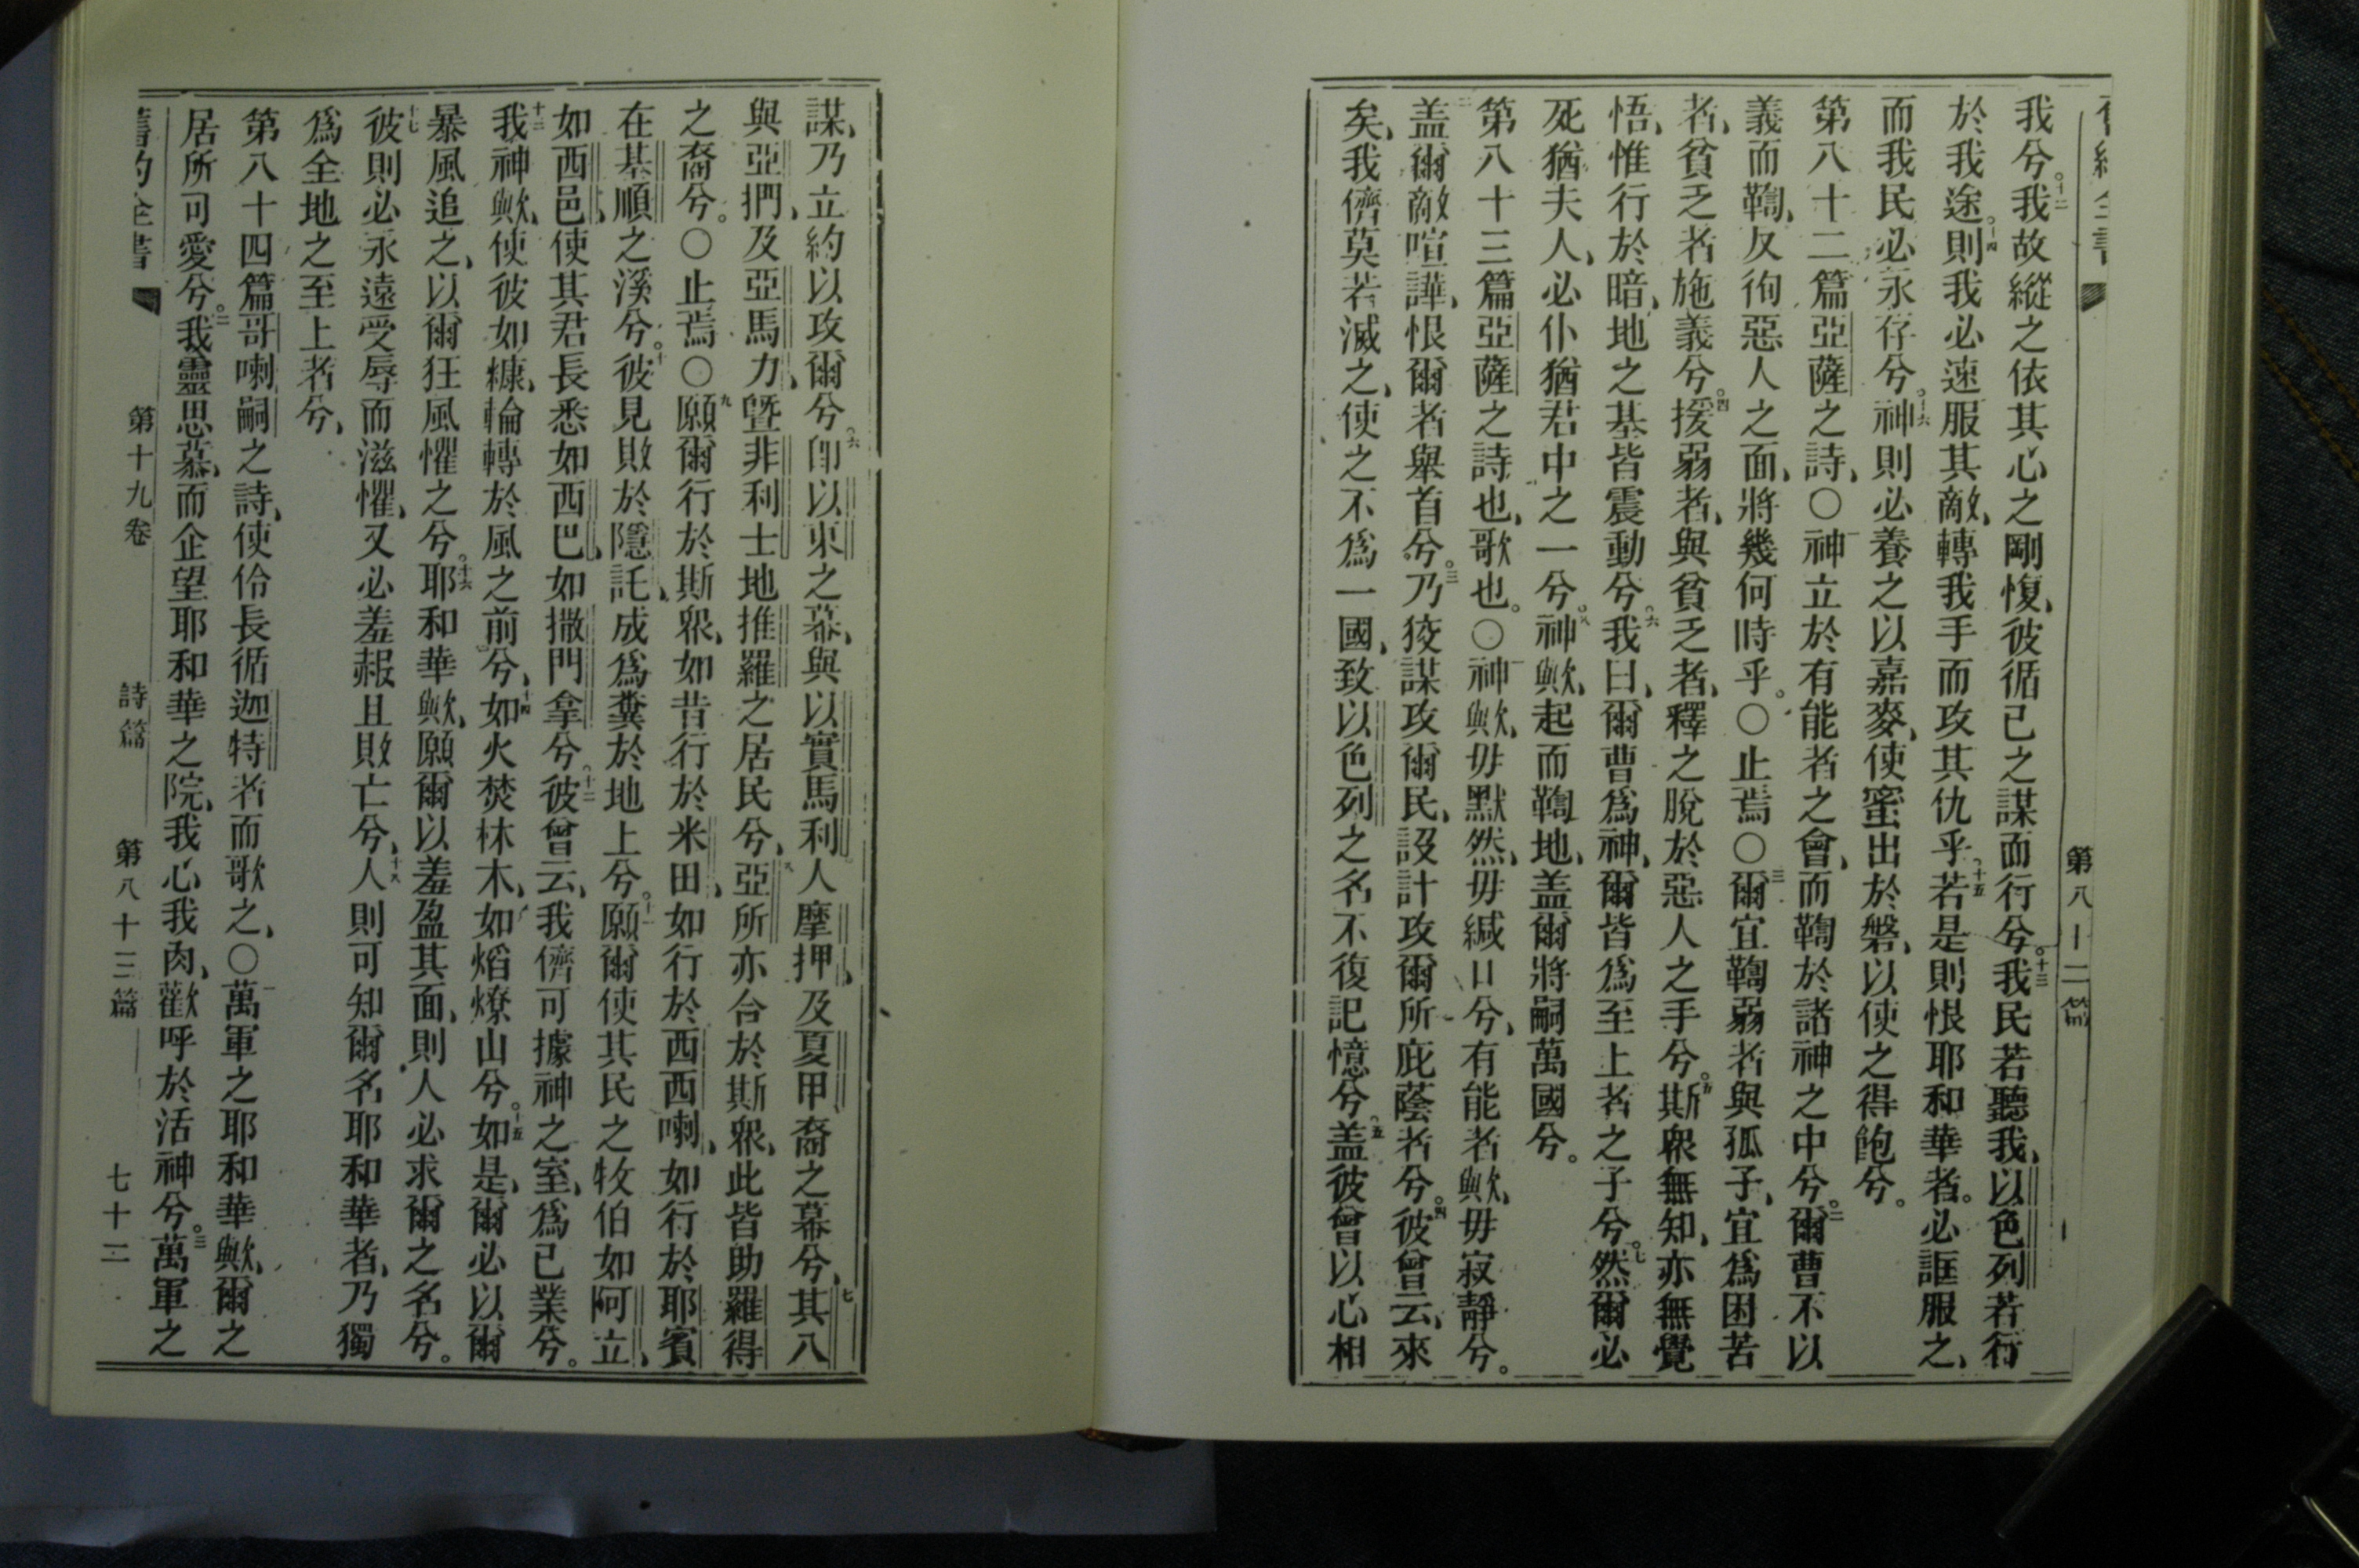 第八十二篇
我兮。十二我故縱之依其心之剛愎、彼循己之謀而行兮。十三我民若聽我、以色列若行
於我途。十四則我必速服其敵、轉我手而攻其仇乎。十五若是則恨耶和華者。必誆服之、
而我民必永存兮。十六神則必養之以嘉麥、使蜜出於磐、以使之得飽兮。
第八十二篇亞薩之詩、〇一神立於有能者之會、而鞫於諸神之中兮。二爾曹不以
義而鞫、反徇惡人之面、將幾何時乎。〇止焉〇三爾宜鞫弱者與孤子、宜爲困苦
者、貧乏者施義兮。四援弱者、與貧乏者、釋之脫於惡人之手兮。五斯衆無知、亦無覺
悟、惟行於暗、地之基皆震動兮。六我曰、爾曹爲神、爾皆爲至上者之子兮。七然爾必
死猶夫人、必仆猶君中之一兮。八神歟、起而鞫地、盖爾將嗣萬國兮。
第八十三篇亞薩之詩也、歌也。〇一神歟、毋默然、毋緘口兮、有能者歟、毋寂靜兮。
二盖爾敵喧譁、恨爾者舉首兮。三乃狡謀攻爾民、設計攻爾所庇蔭者兮。四彼曾云、來
矣、我儕莫若滅之、使之不爲一國、致以色列之名不復記憶兮。五盖彼曾以心相
謀、乃立約以攻爾兮。六卽以東之幕、與以實馬利人摩押、及夏甲裔之幕兮、七其八
與亞捫、及亞馬力、曁非利士地推羅之居民兮、八亞所亦合於斯衆、此皆助羅得
之裔兮。〇止焉〇九願爾行於斯衆、如昔行於米田、如行於西西喇、如行於耶賓
在基順之溪兮。十彼見敗於隱託、成爲糞於地上兮。十一願爾使其民之牧伯如阿立、
如西邑、使其君長悉如西巴、如撒門拿兮。十二彼曾云、我儕可據神之室、爲已業兮。
十三我神歟、使彼如糠、輪轉於風之前兮、十四如火焚林木、如熖燎山兮。十五如是、爾必以爾
暴風追之、以爾狂風懼之兮。十六耶和華歟、願爾以羞盈其面、則人必求爾之名兮。
十七彼則必永遠受辱而滋懼、又必羞赧且敗亡兮、十八人則可知爾名耶和華者、乃獨
爲全地之至上者兮、
第八十四篇哥喇嗣之詩、使伶長循迦特者而歌之、〇一萬軍之耶和華歟、爾之
居所可愛兮。二我靈思慕、而企望耶和華之院、我心我肉、歡呼於活神兮。三萬軍之
舊約全書 第十九卷 詩篇 第八十三篇 七十二